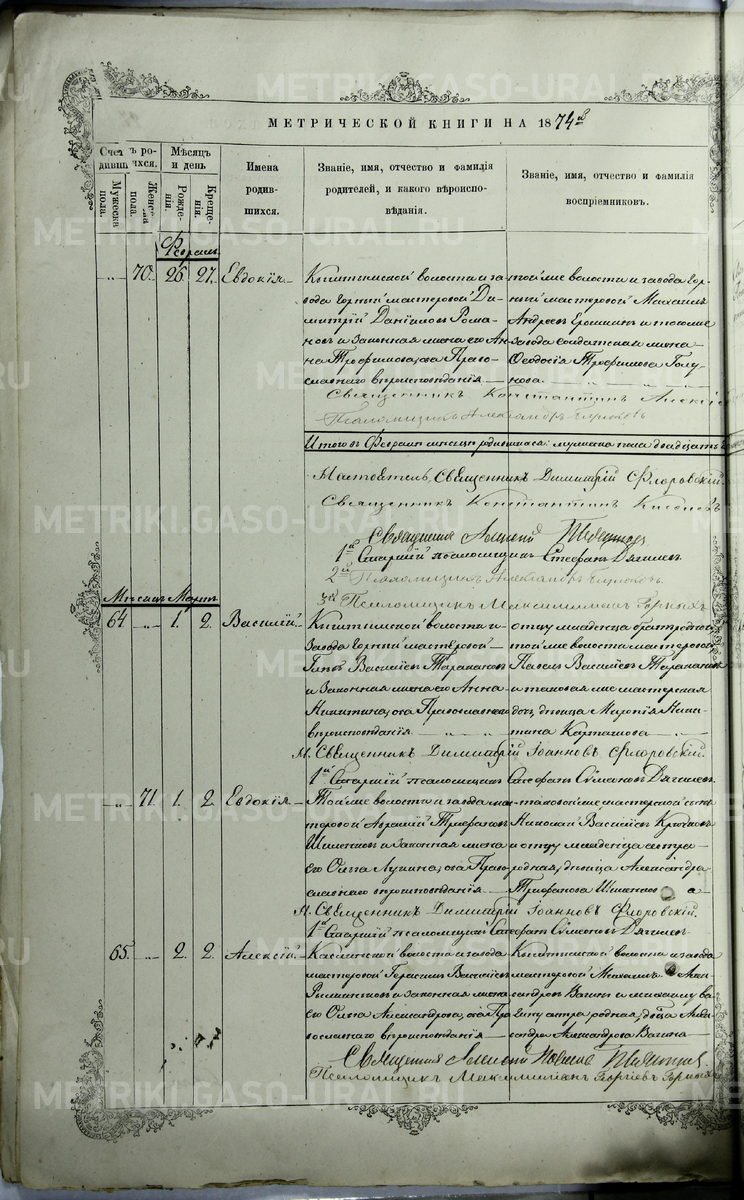 МЕТРИЧЕСКОЙ КНИГИ НА 1874й
Счетъ родившихся.
Мужеска пола.
Женска пола.
Мѣсяцъ и день
Рожденія.
Крещенія.
Имена родившихся.
Званіе, имя, отчество и фамилія родителей, и какого вѣроисповѣданія.
Званіе, имя, отчество и фамилія воспріемниковъ.
Февраль
70. 26. 27. Евдокія
Кыштымской волости и завода горный мастеровой Димитрій Даніиловъ Романовъ и законная жена его Анна Трофимова, оба Православнаго вѣроисповѣданія
той же волости и завода горный мастеровой Михаилъ Андреевъ Ерошкинъ и того же завода солдатская жена Ѳеодосія Трофимова
Священникъ Константинъ
Псаломщикъ Александръ
Итого въ Февралѣ мѣсяцѣ родившихся: мужеска пола двадцать
Настоятель, Священникъ Димитрій Флоровскій.
Священникъ Константинъ
Священникъ Алексій
1й Старшій псаломщикъ Стефанъ Дягилевъ
2й Псаломщикъ Александръ
3й Псаломщикъ Максимиліанъ Горныхъ
Мѣсяцъ Мартъ
64 1. 2. Василій
Кыштымской волости и Завода горный мастеровой Глѣбъ Василіевъ Таракановъ и Законная жена его Анна Никитина, оба Православнаго вѣроисповѣданія
отцу младенца братъ родной, той же волости мастеровой Павелъ Василіевъ Таракановъ и таковая же мастерская дочь, дѣвица Миропія Никитина Карташова
Н. Священникъ Димитрій Іоанновъ Флоровскій.
1й Старшій псаломщикъ Стефанъ Сѵмеоновъ Дягилевъ
71. 1. 2. Евдокія
Той же волости и завода мастеровой Аврамій Трифановъ и Законная жена его Ольга Лукина, оба Православнаго вѣроисповѣданія
таковой же мастерской сынъ Николай Василіевъ Крючковъ и отцу младенца сестра родная, дѣвица Александра Трифанова
Н. Священникъ Димитрій Іоанновъ Флоровскій.
1й Старшій псаломщикъ Стефанъ Сѵмеоновъ Дягилевъ
65. 2. 2. Алексій
Каслинской волости и завода мастеровой Герасимъ Василіевъ и законная жена его Олена Александрова, оба Православнаго вѣроисповѣданія
Кыштымской волости и завода мастеровой Михаилъ Александровъ Вагинъ и Вагину сестра родная, дѣвица Александра Александрова Вагина
Священникъ Алексій
Псаломщикъ Максимиліанъ Георгіевъ Горныхъ
METRIKI.GASO-URAL.RU